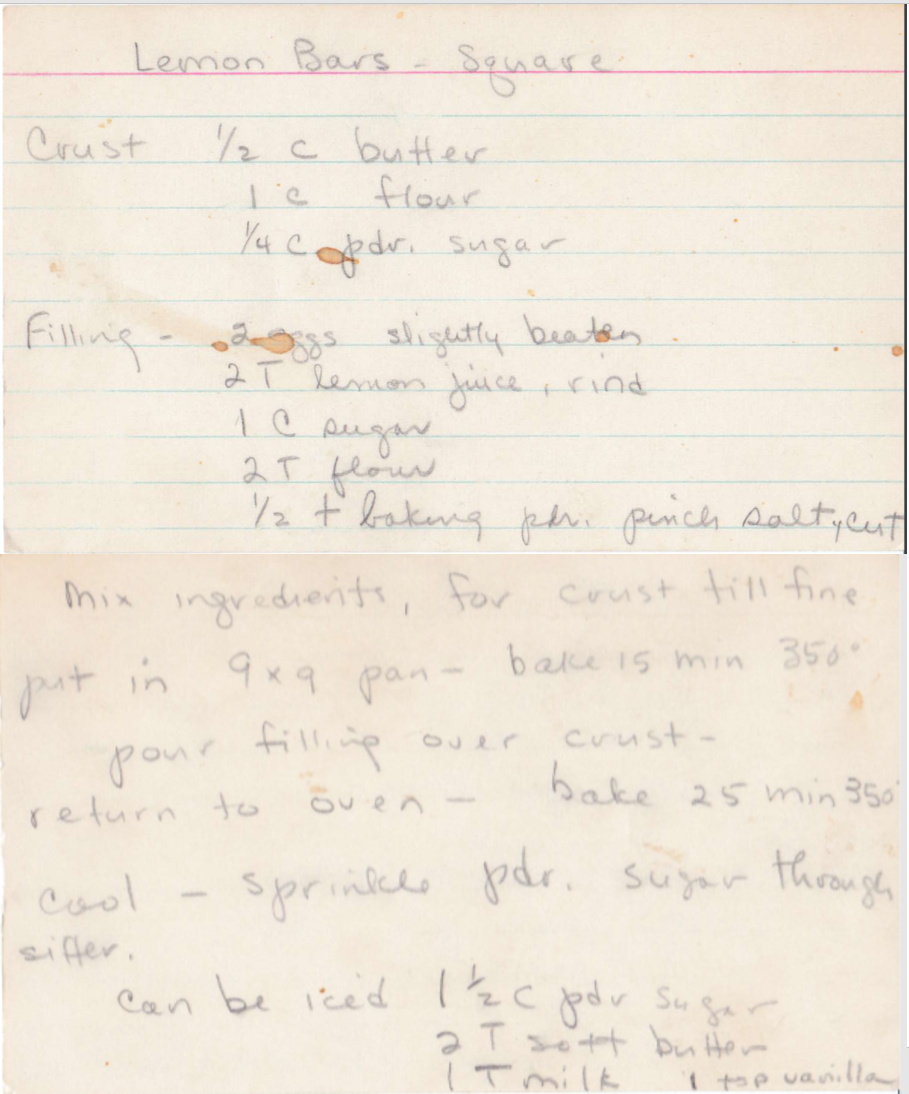 Lemon Bars - Square
Crust 1/2 c butter
1 c flour
1/4 c pdr. sugar
Filling - 2 eggs slightly beaten
2 T lemon juice, rind
1 C sugar
2 T flour
1/2 t baking pdr. pinch salt, cut
Mix ingredients, for crust till fine
put in 9x9 pan - bake 15 min 350°
pour filling over crust -
return to oven - bake 25 min 350°
cool - sprinkle pdr. sugar through
sifter.
can be iced 1 1/2 c pdr sugar
2 T soft butter
1 T milk 1 tsp vanilla